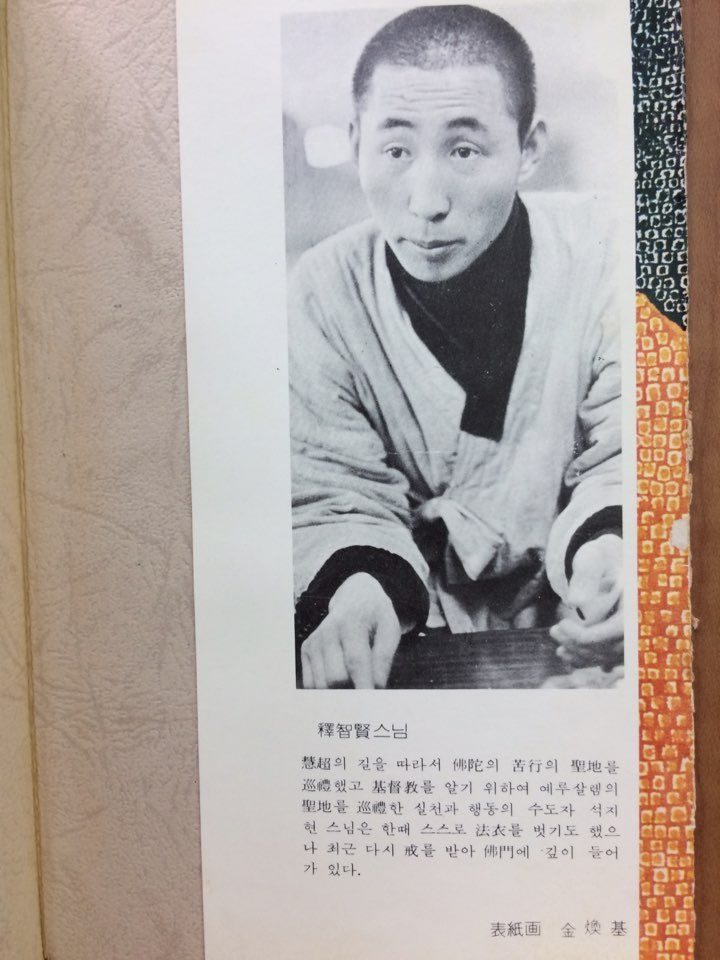 釋智賢스님
慧超의 길을 따라서 佛陀의 苦行의 聖地를
巡禮했고 基督教를 알기 위하여 예루살렘의
聖地를 巡禮한 실천과 행동의 수도자 석지
현 스님은 한때 스스로 法衣를 벗기도 했으
나 최근 다시 戒를 받아 佛門에 깊이 들어
가 있다.
表紙画 金煥基